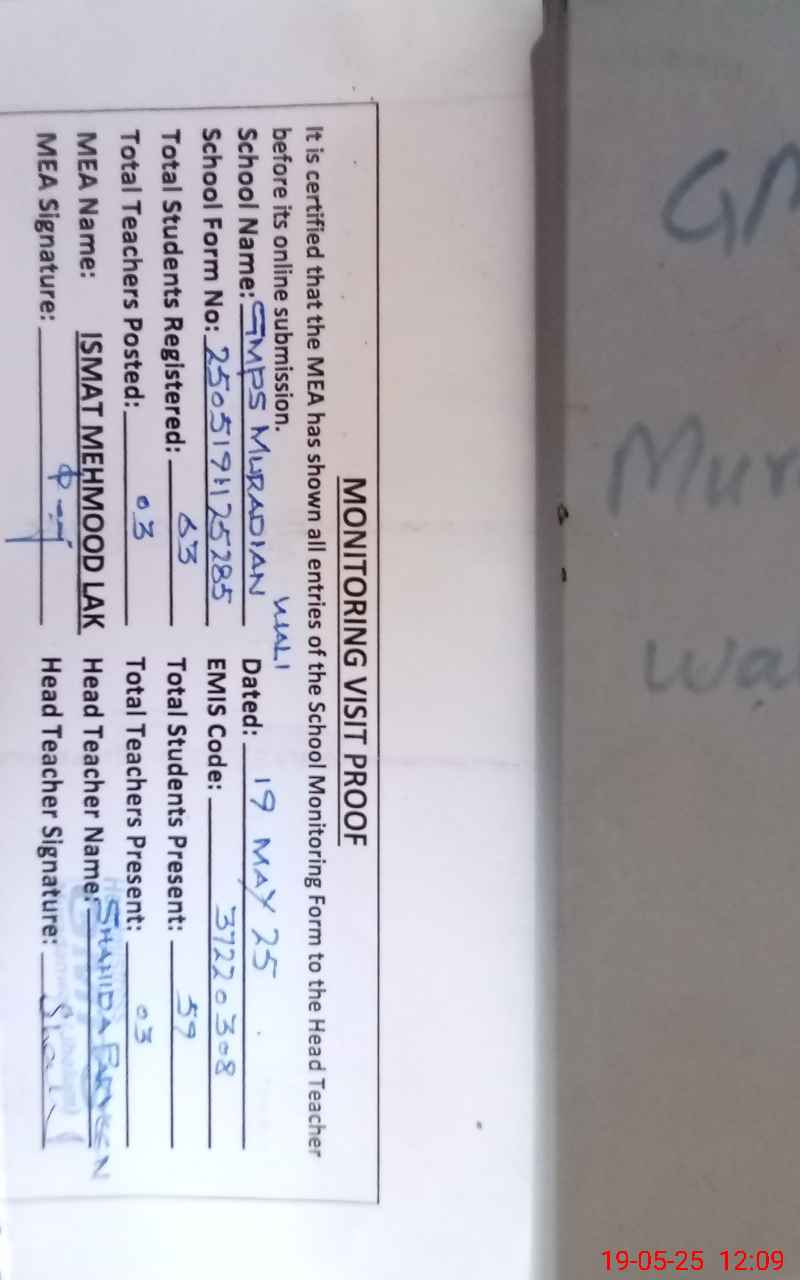 MONITORING VISIT PROOF
It is certified that the MEA has shown all entries of the School Monitoring Form to the Head Teacher
before its online submission.
School Name: GMPS MURADIAN WALI Dated: 19 MAY 25
School Form No: 2505191125285 EMIS Code: 37220308
Total Students Registered: 63 Total Students Present: 59
Total Teachers Posted: 03 Total Teachers Present: 03
MEA Name: ISMAT MEHMOOD LAK Head Teacher Name: SHAHIDA PARVEEN
MEA Signature: Head Teacher Signature:
GM
Mur
Wal
19-05-25 12:09